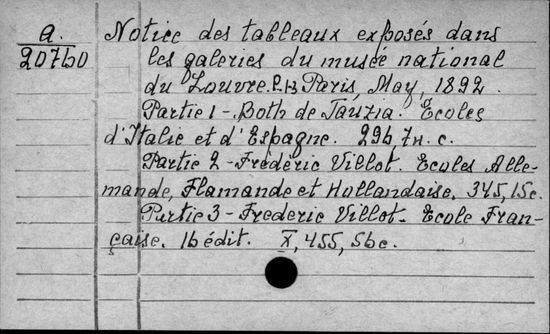 a.
20760
Notice des tableaux exposés dans
les galeries du musée national
du Louvre. P. 1-3 Paris, May, 1892.
Partie 1 - Both de Tauzia. Ecoles
d'Italie et d'Espagne. 296, 7 н. с.
Partie 2 - Frédéric Villot. Ecoles Alle-
mande, Flamande et Hollandaise. 345, 15 c.
Partie 3 - Frederic Villot. Ecole Fran-
çaise. 16 édit. X, 455, 56 c.